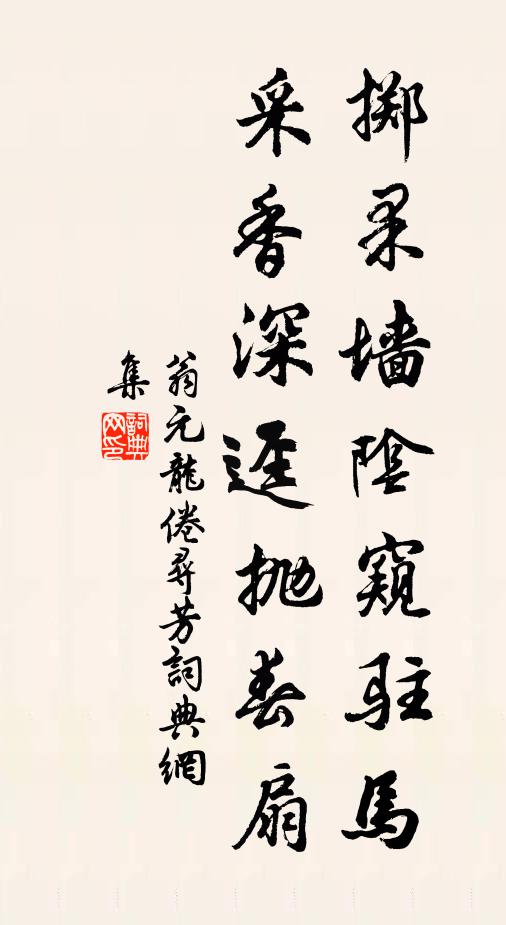 掷果墙陰窺駐馬
采香深逕抛春扇
翁元龍倦尋芳詞典網
集
詞典
网印